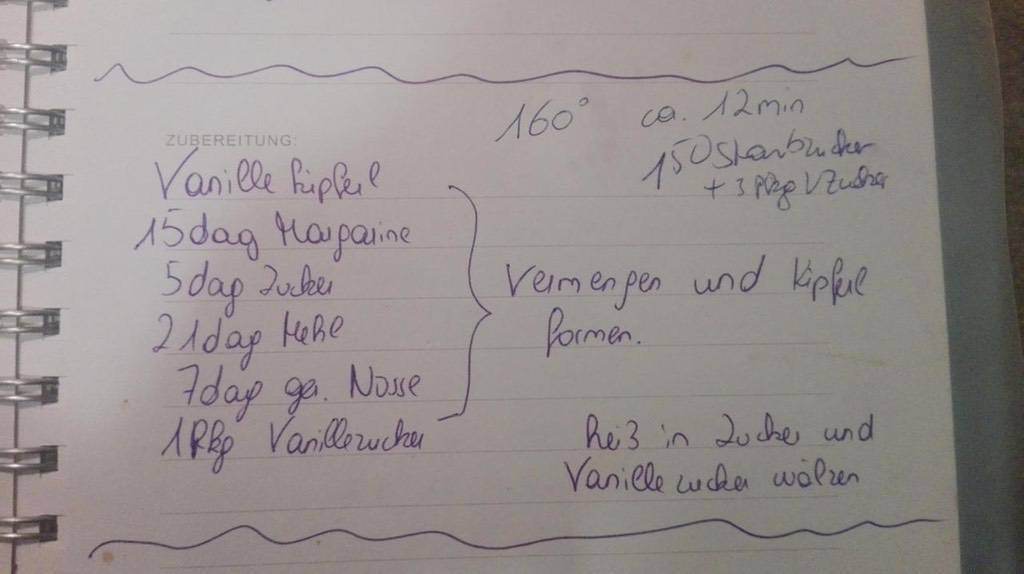 160° ca. 12min
ZUBEREITUNG:
150 Staubzucker
+ 3 Pkg VZucker
Vanille kipferl
15dag Margarine
5dag Zucker
21dag Mehl
7dag ger. Nüsse
1Pkg Vanillezucker
Vermengen und Kipferl
formen.
heiß in Zucker und
Vanillezucker wälzen